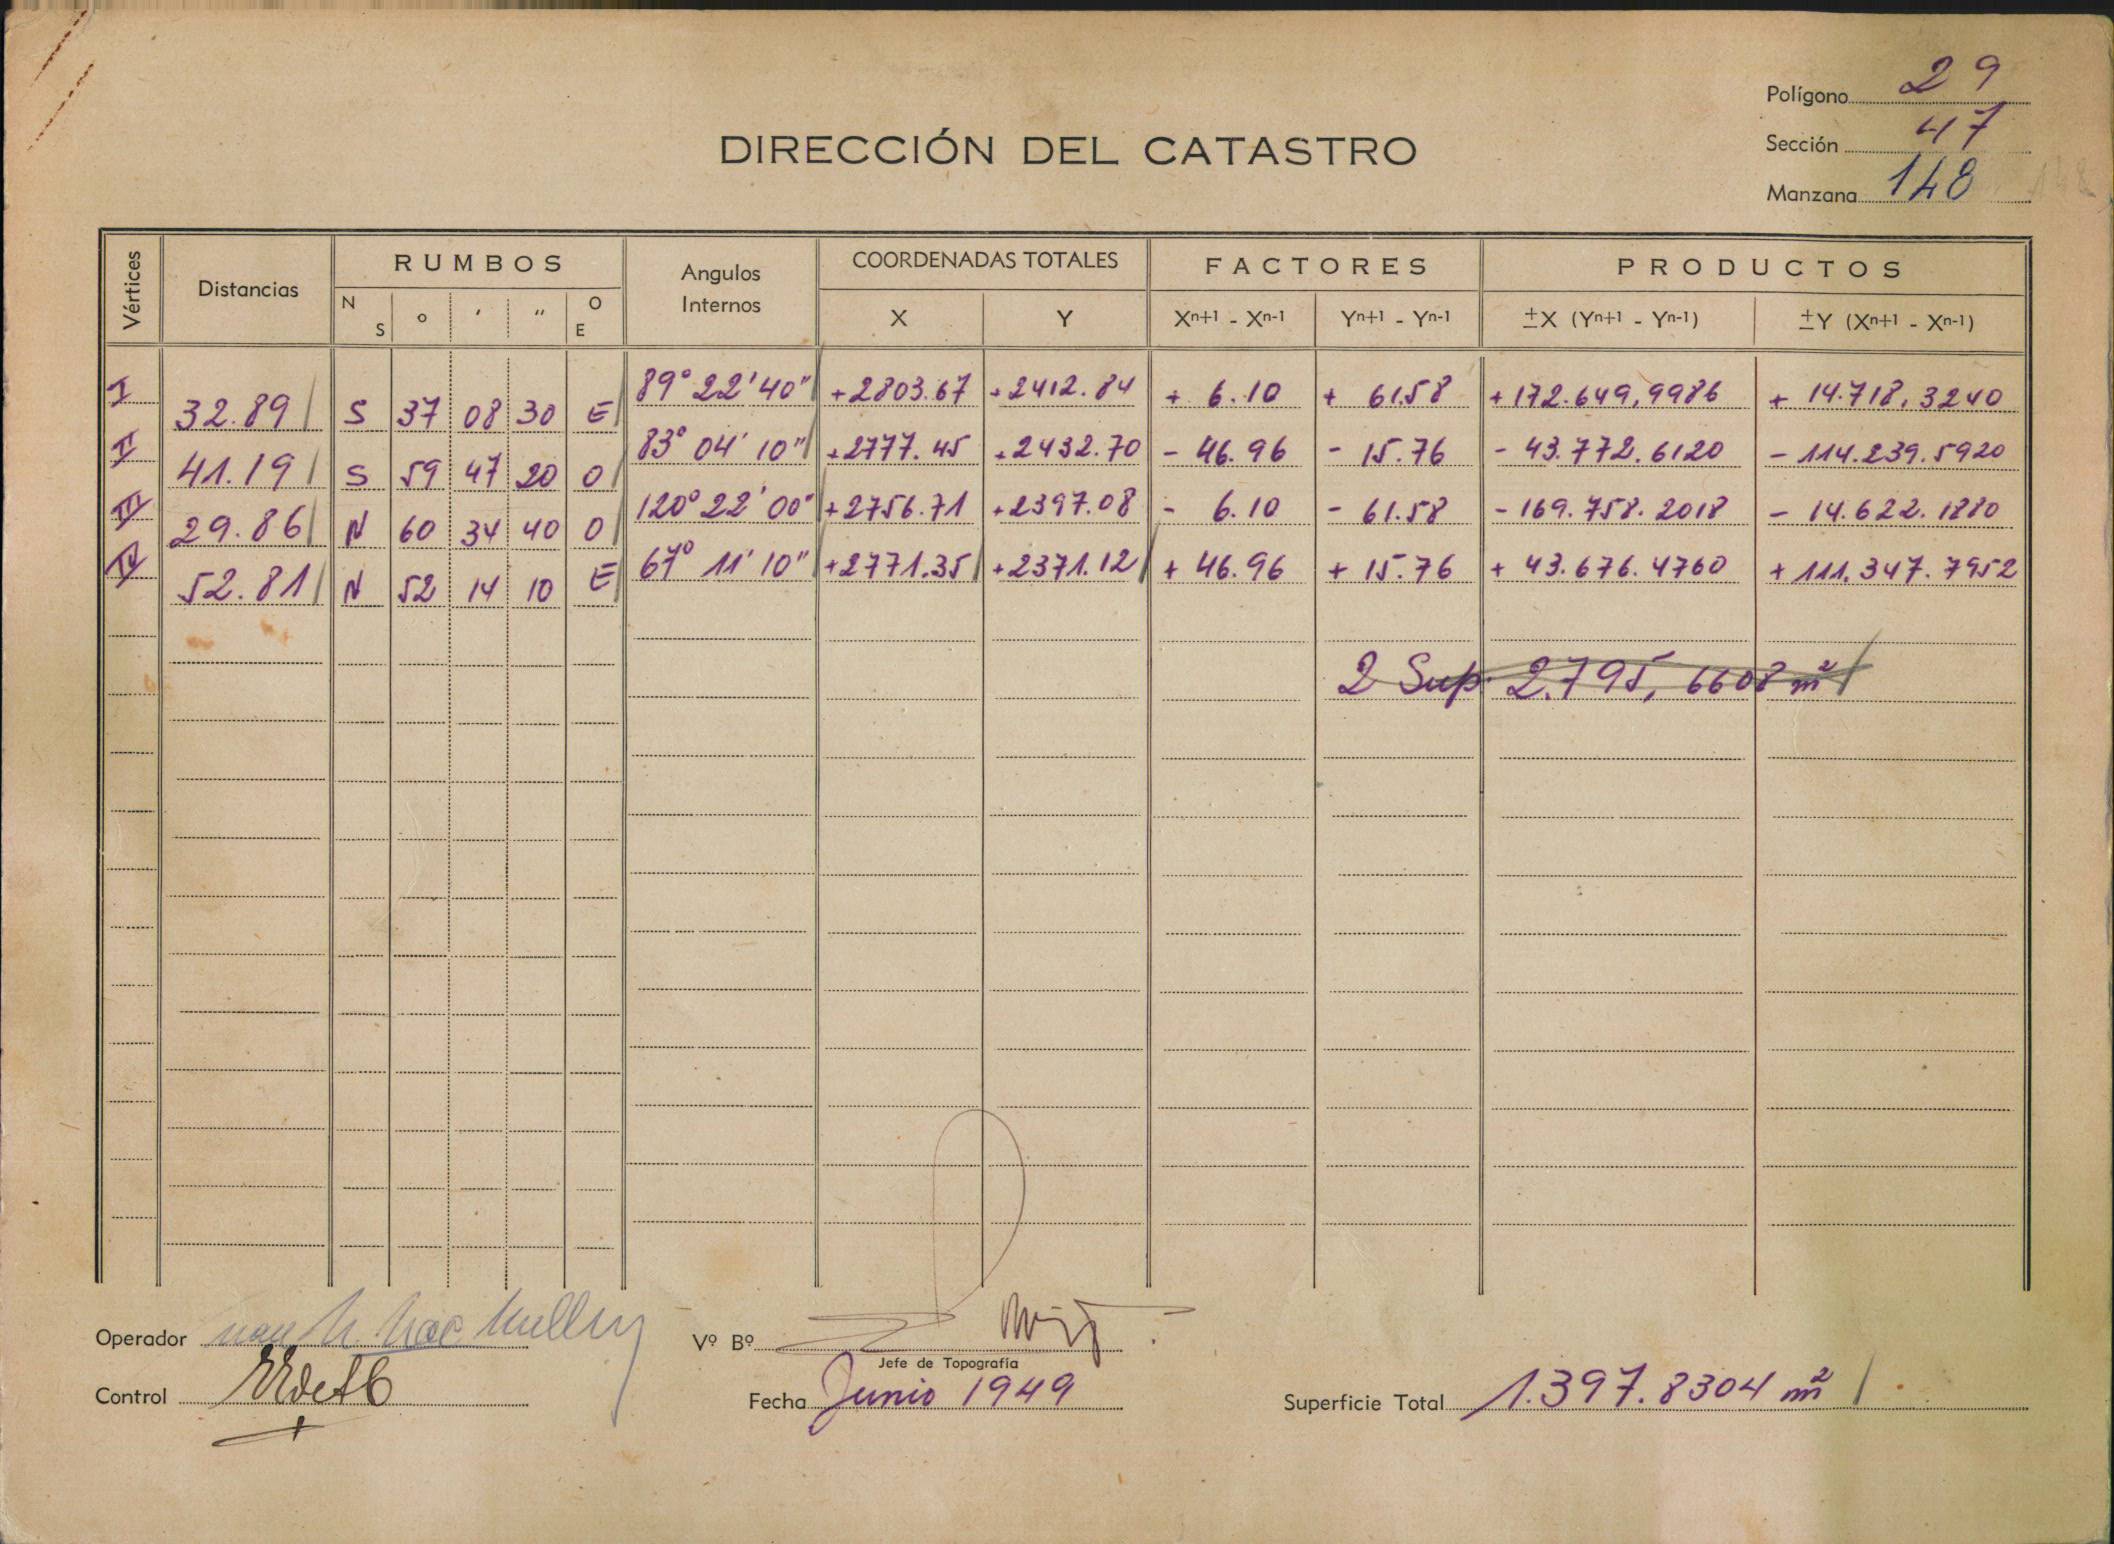 Polígono 29
DIRECCIÓN DEL CATASTRO
Sección 47
Manzana 148 148
Vértices Distancias RUMBOS Angulos Internos COORDENADAS TOTALES FACTORES PRODUCTOS
N S ° ' " O E X Y Xⁿ⁺¹ - Xⁿ⁻¹ Yⁿ⁺¹ - Yⁿ⁻¹ ±X (Yⁿ⁺¹ - Yⁿ⁻¹) ±Y (Xⁿ⁺¹ - Xⁿ⁻¹)
I 32.89 S 37 08 30 E 89° 22' 40" +2803.67 +2412.84 + 6.10 + 61.58 +172.649,9986 + 14.718,3240
II 41.19 S 59 47 20 O 83° 04' 10" +2777.45 +2432.70 - 46.96 - 15.76 - 43.772.6120 - 114.239.5920
III 29.86 N 60 34 40 O 120° 22' 00" +2756.71 +2397.08 - 6.10 - 61.58 - 169.758.2018 - 14.622.1880
IV 52.81 N 52 14 10 E 67° 11' 10" +2771.35 +2371.12 + 46.96 + 15.76 + 43.676.4760 + 111.347.7952
2 Sup. 2.795,6608 m²
Operador
Vº Bº
Jefe de Topografía
Control
Fecha Junio 1949
Superficie Total 1.397.8304 m²